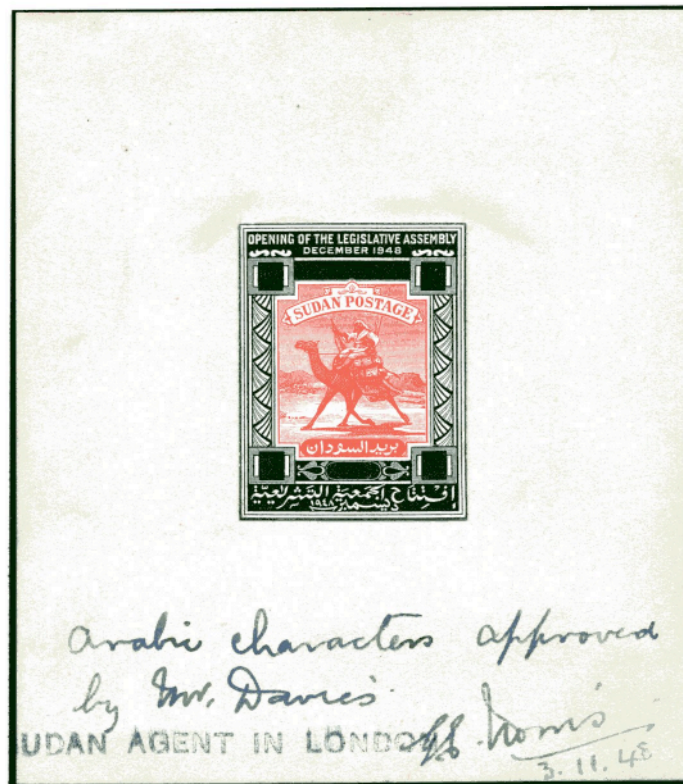 OPENING OF THE LEGISLATIVE ASSEMBLY
DECEMBER 1948
SUDAN POSTAGE
بريد السودان
افتتاح الجمعية التشريعية
ديسمبر ١٩٤٨
Arabic characters approved
by Mr. Davies.
UDAN AGENT IN LONDON
3.11.48